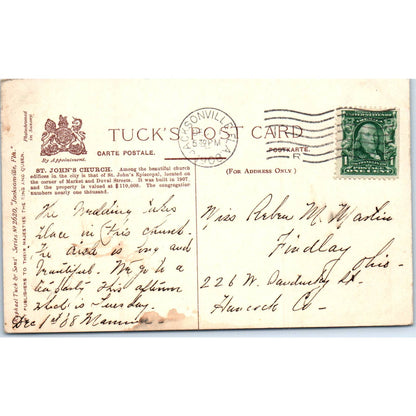 JACKSONVILLE, FLA.
5 PM
1908
TUCK'S POST CARD
By Appointment.
CARTE POSTALE.
POSTKARTE.
R
(FOR ADDRESS ONLY)
ST. JOHN'S CHURCH. Among the beautiful church
edifices in the city is that of St. John's Episcopal, located on
the corner of Market and Duval Streets. It was built in 1907,
and the property is valued at $110,000. The congregation
numbers nearly one thousand.
Raphael Tuck & Sons' Series No 2620, "Jacksonville, Fla."
PUBLISHERS TO THEIR MAJESTIES THE KING AND QUEEN.
Photochromed
in Saxony
The Wedding takes
place in this church.
The area is long and
beautiful. We go to a
tea party this afternoon
which is Tuesday.
Dec 1st 08 Mamma
Miss Reba M. Martin
Findlay
Ohio.
226 W. Sandusky St.
Hancock Co
1 1
ONE CENT